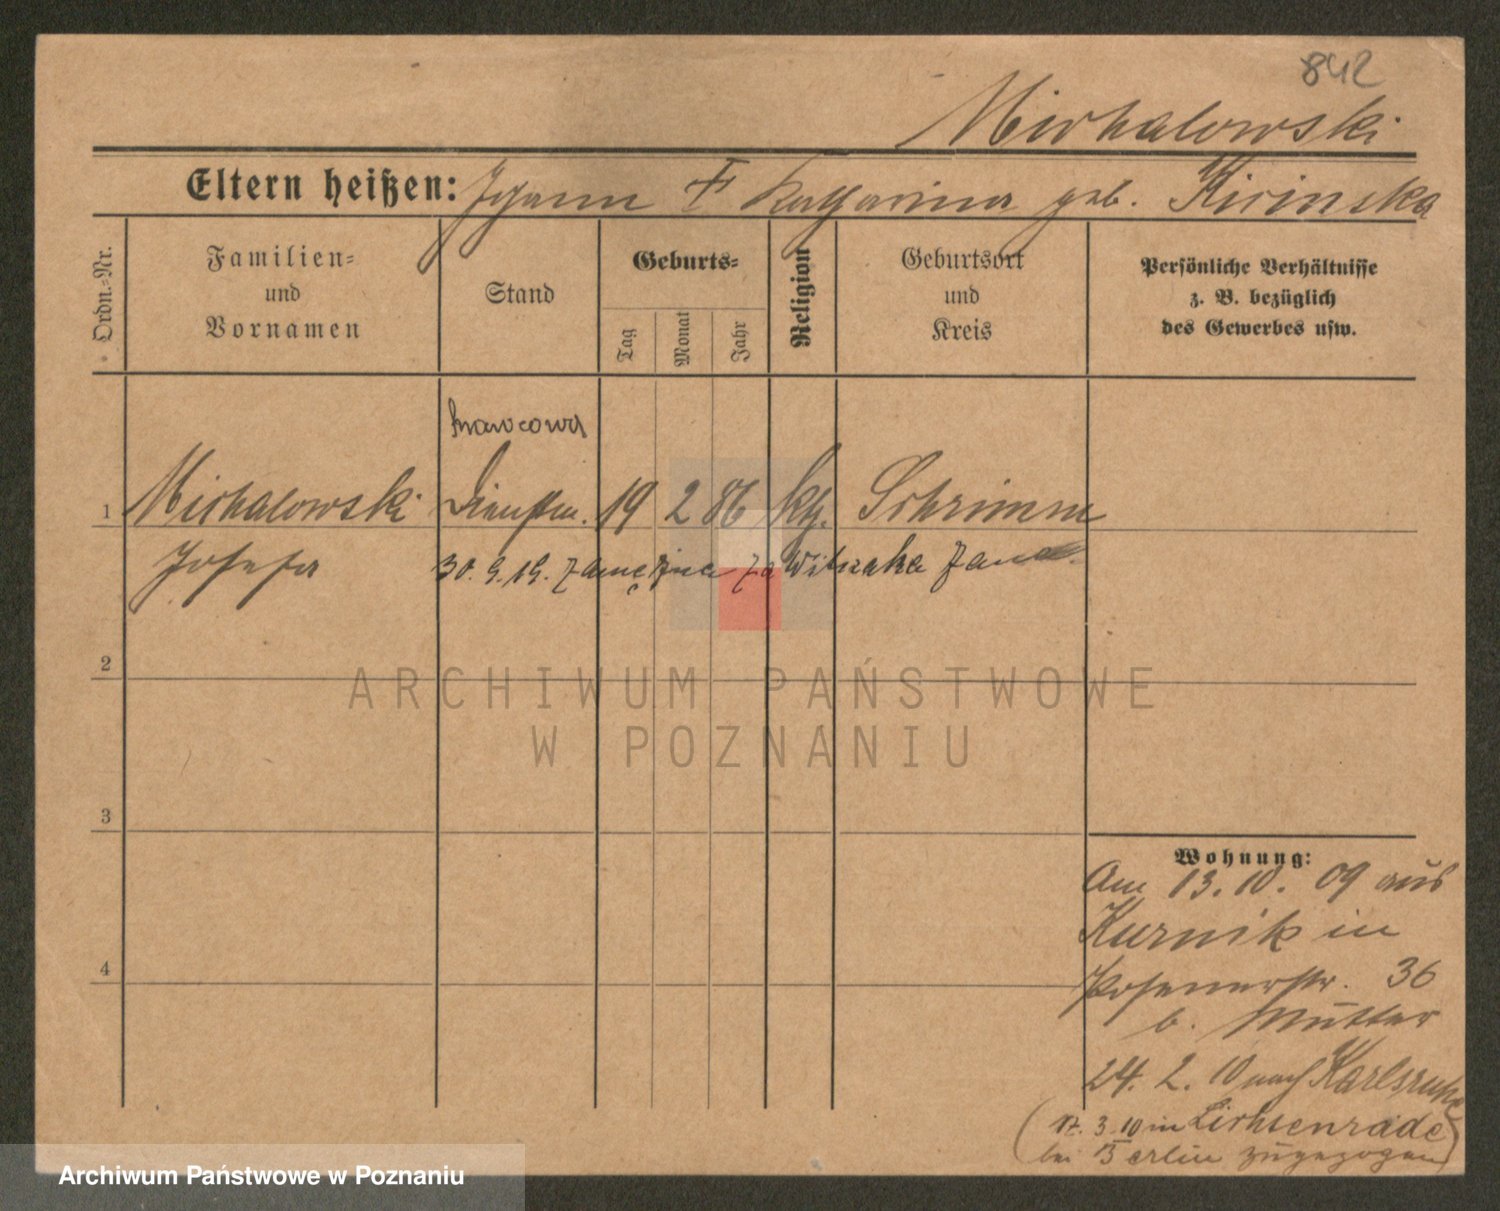 842
Michalowski
Eltern heißen: Johann † Katharina geb. Kirinska
Ordn.-Nr.
Familien-
und
Vornamen
Stand
Geburts-
Tag
Monat
Jahr
Religion
Geburtsort
und
Kreis
Persönliche Verhältnisse
z. B. bezüglich
des Gewerbes usw.
krawcowa
1 Michalowski Dienstm. 19 2 86 kth. Schrimm
Josefa 30.9.19. zamężna za Witczaka Jana
2
3
4
Wohnung:
Am 13.10.09 aus
Kurnik in
Posenerstr. 36
b. Mutter
24.2.10 nach Karlsruhe
(12.3.10 in Lichtenrade
bei Berlin zugezogen)
ARCHIWUM PAŃSTWOWE
W POZNANIU
Archiwum Państwowe w Poznaniu